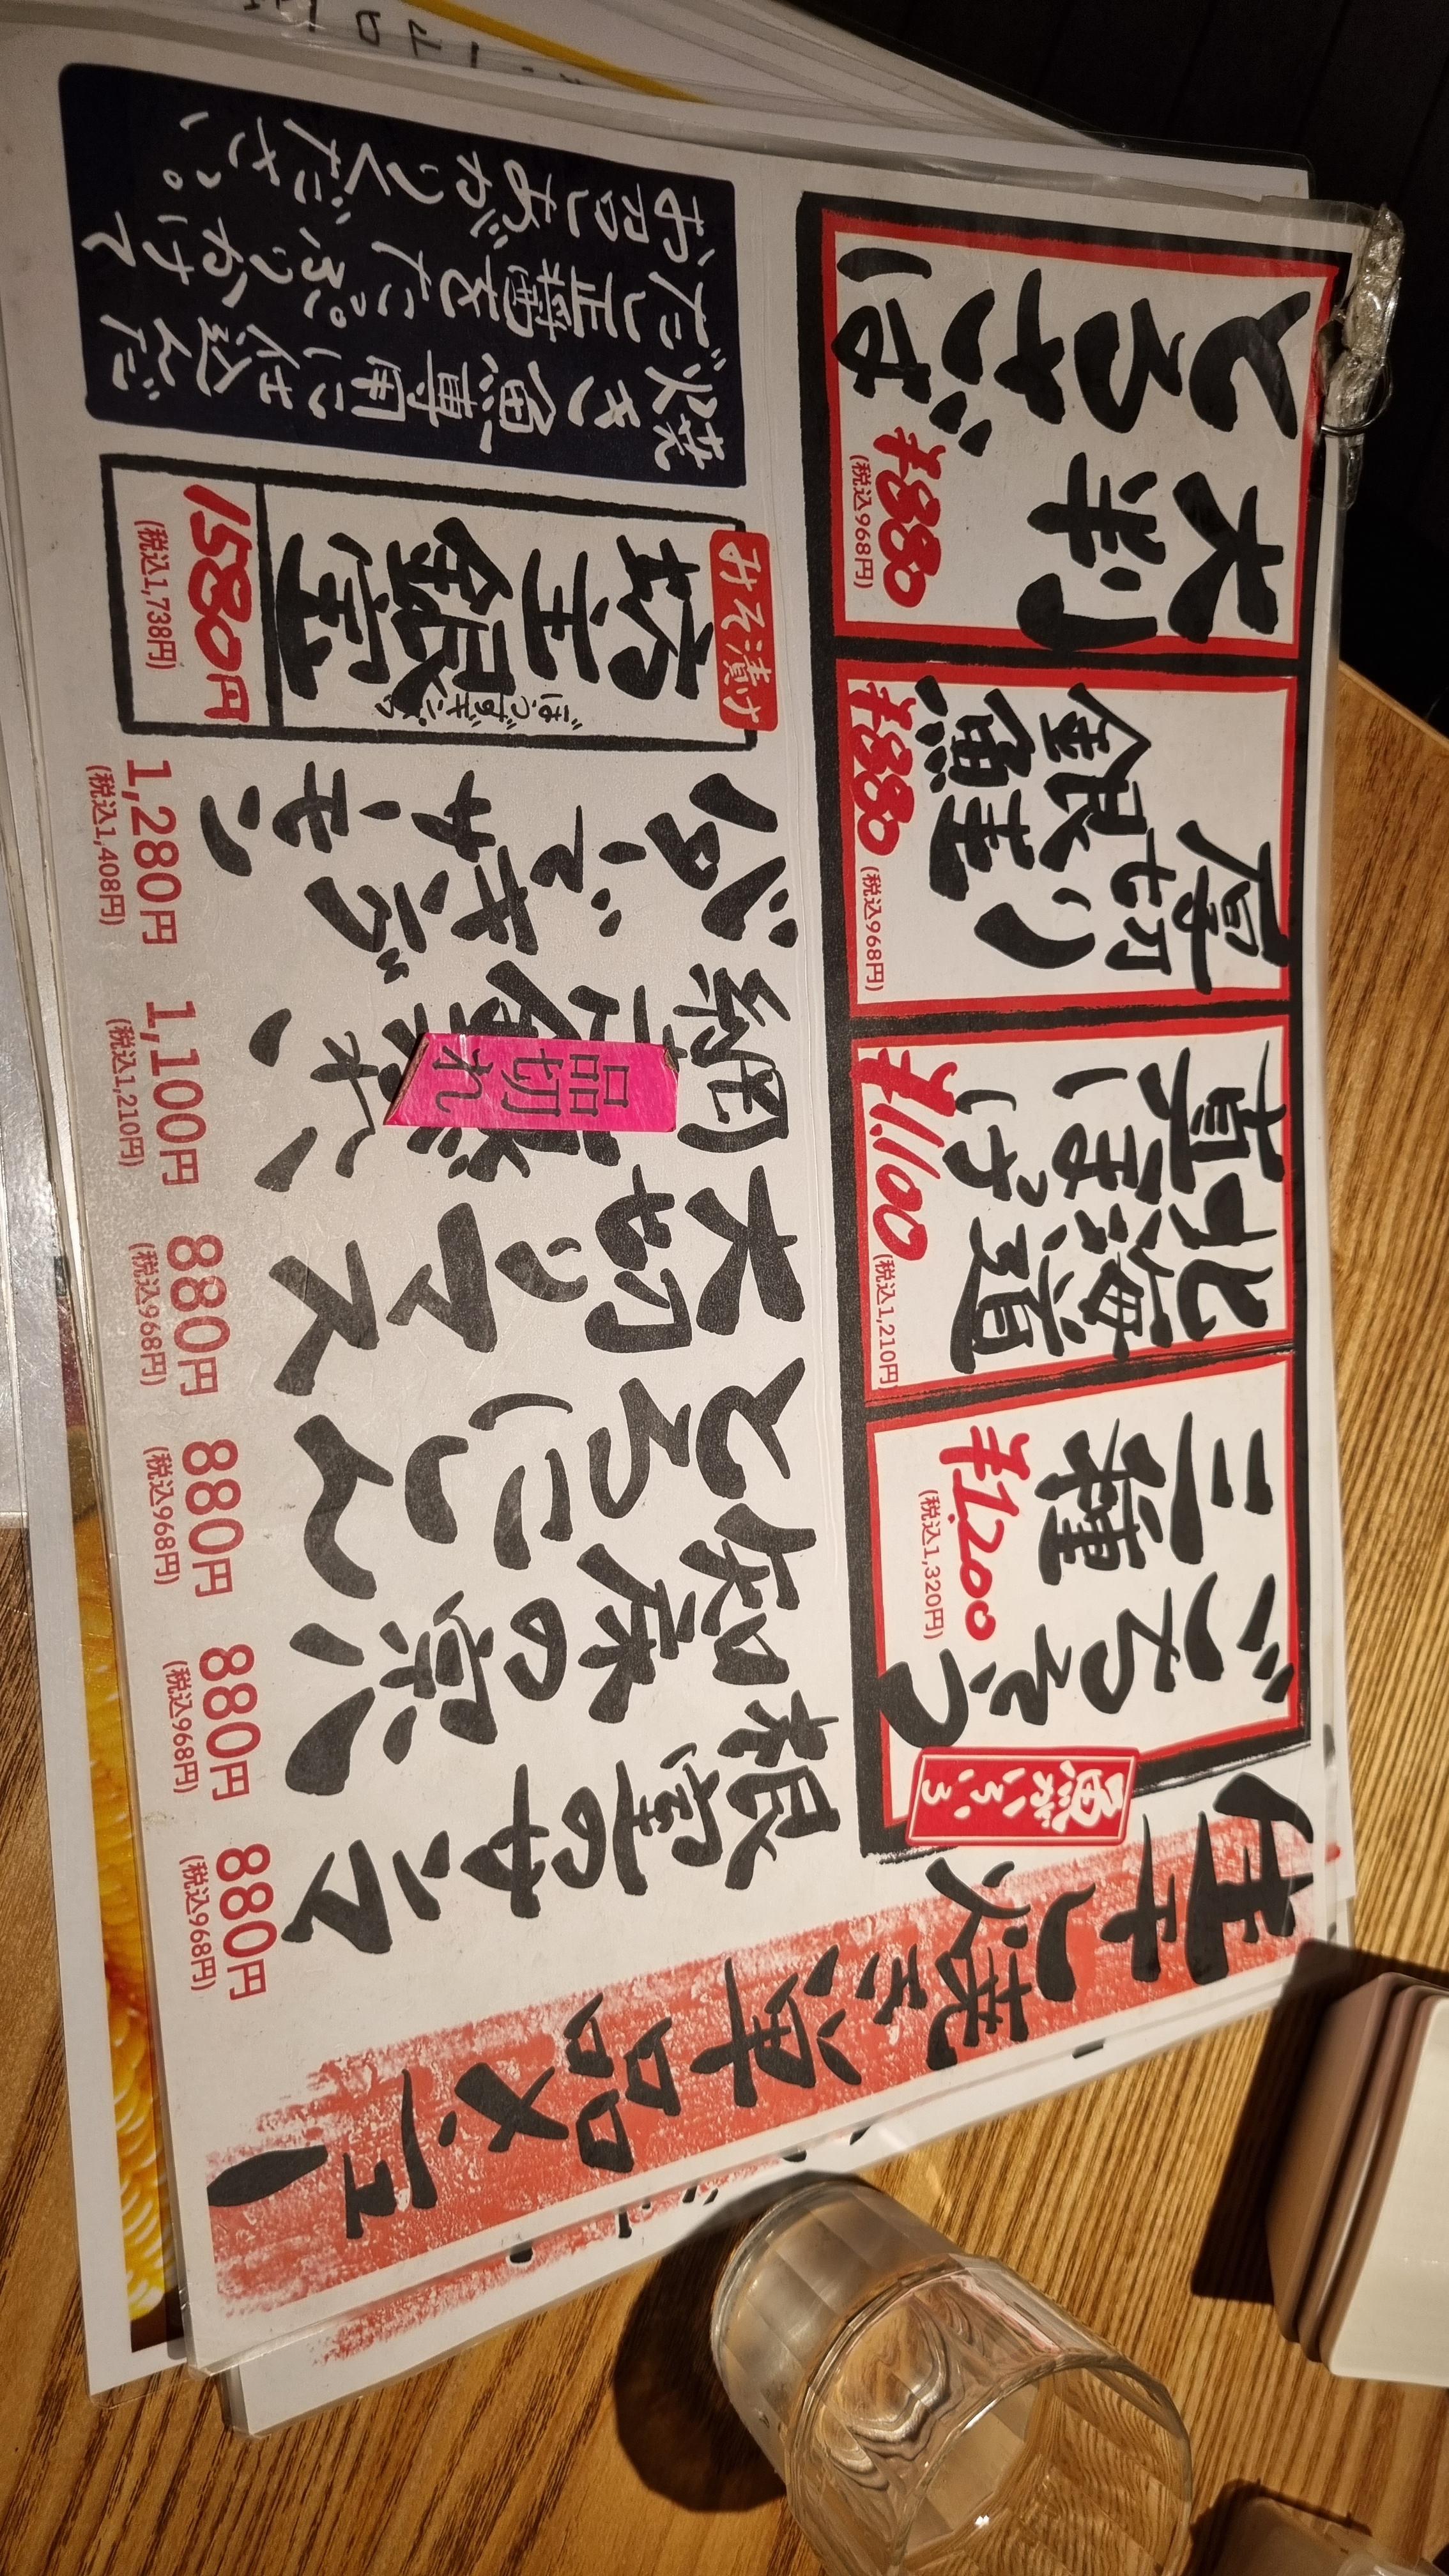 生干し焼き単品メニュー
魚がいろいろ
ごちそう
三種
¥1,200
(税込1,320円)
北海道
真ほっけ
¥1,100
(税込1,210円)
厚切り
銀鮭
¥880
(税込968円)
大判
とろさば
¥880
(税込968円)
根室のサンマ
880円
(税込968円)
知床の宗八
880円
(税込968円)
とろにしん
880円
(税込968円)
大切りマス
880円
(税込968円)
網
品切れ
1,100円
(税込1,210円)
キング
サーモン
1,280円
(税込1,408円)
みそ漬け
坊主銀宝
ぼうずギンポ
1580円
(税込1,738円)
焼き魚専用に仕込んだ
だし正醤をたっぷりかけて
お召しあがりください。